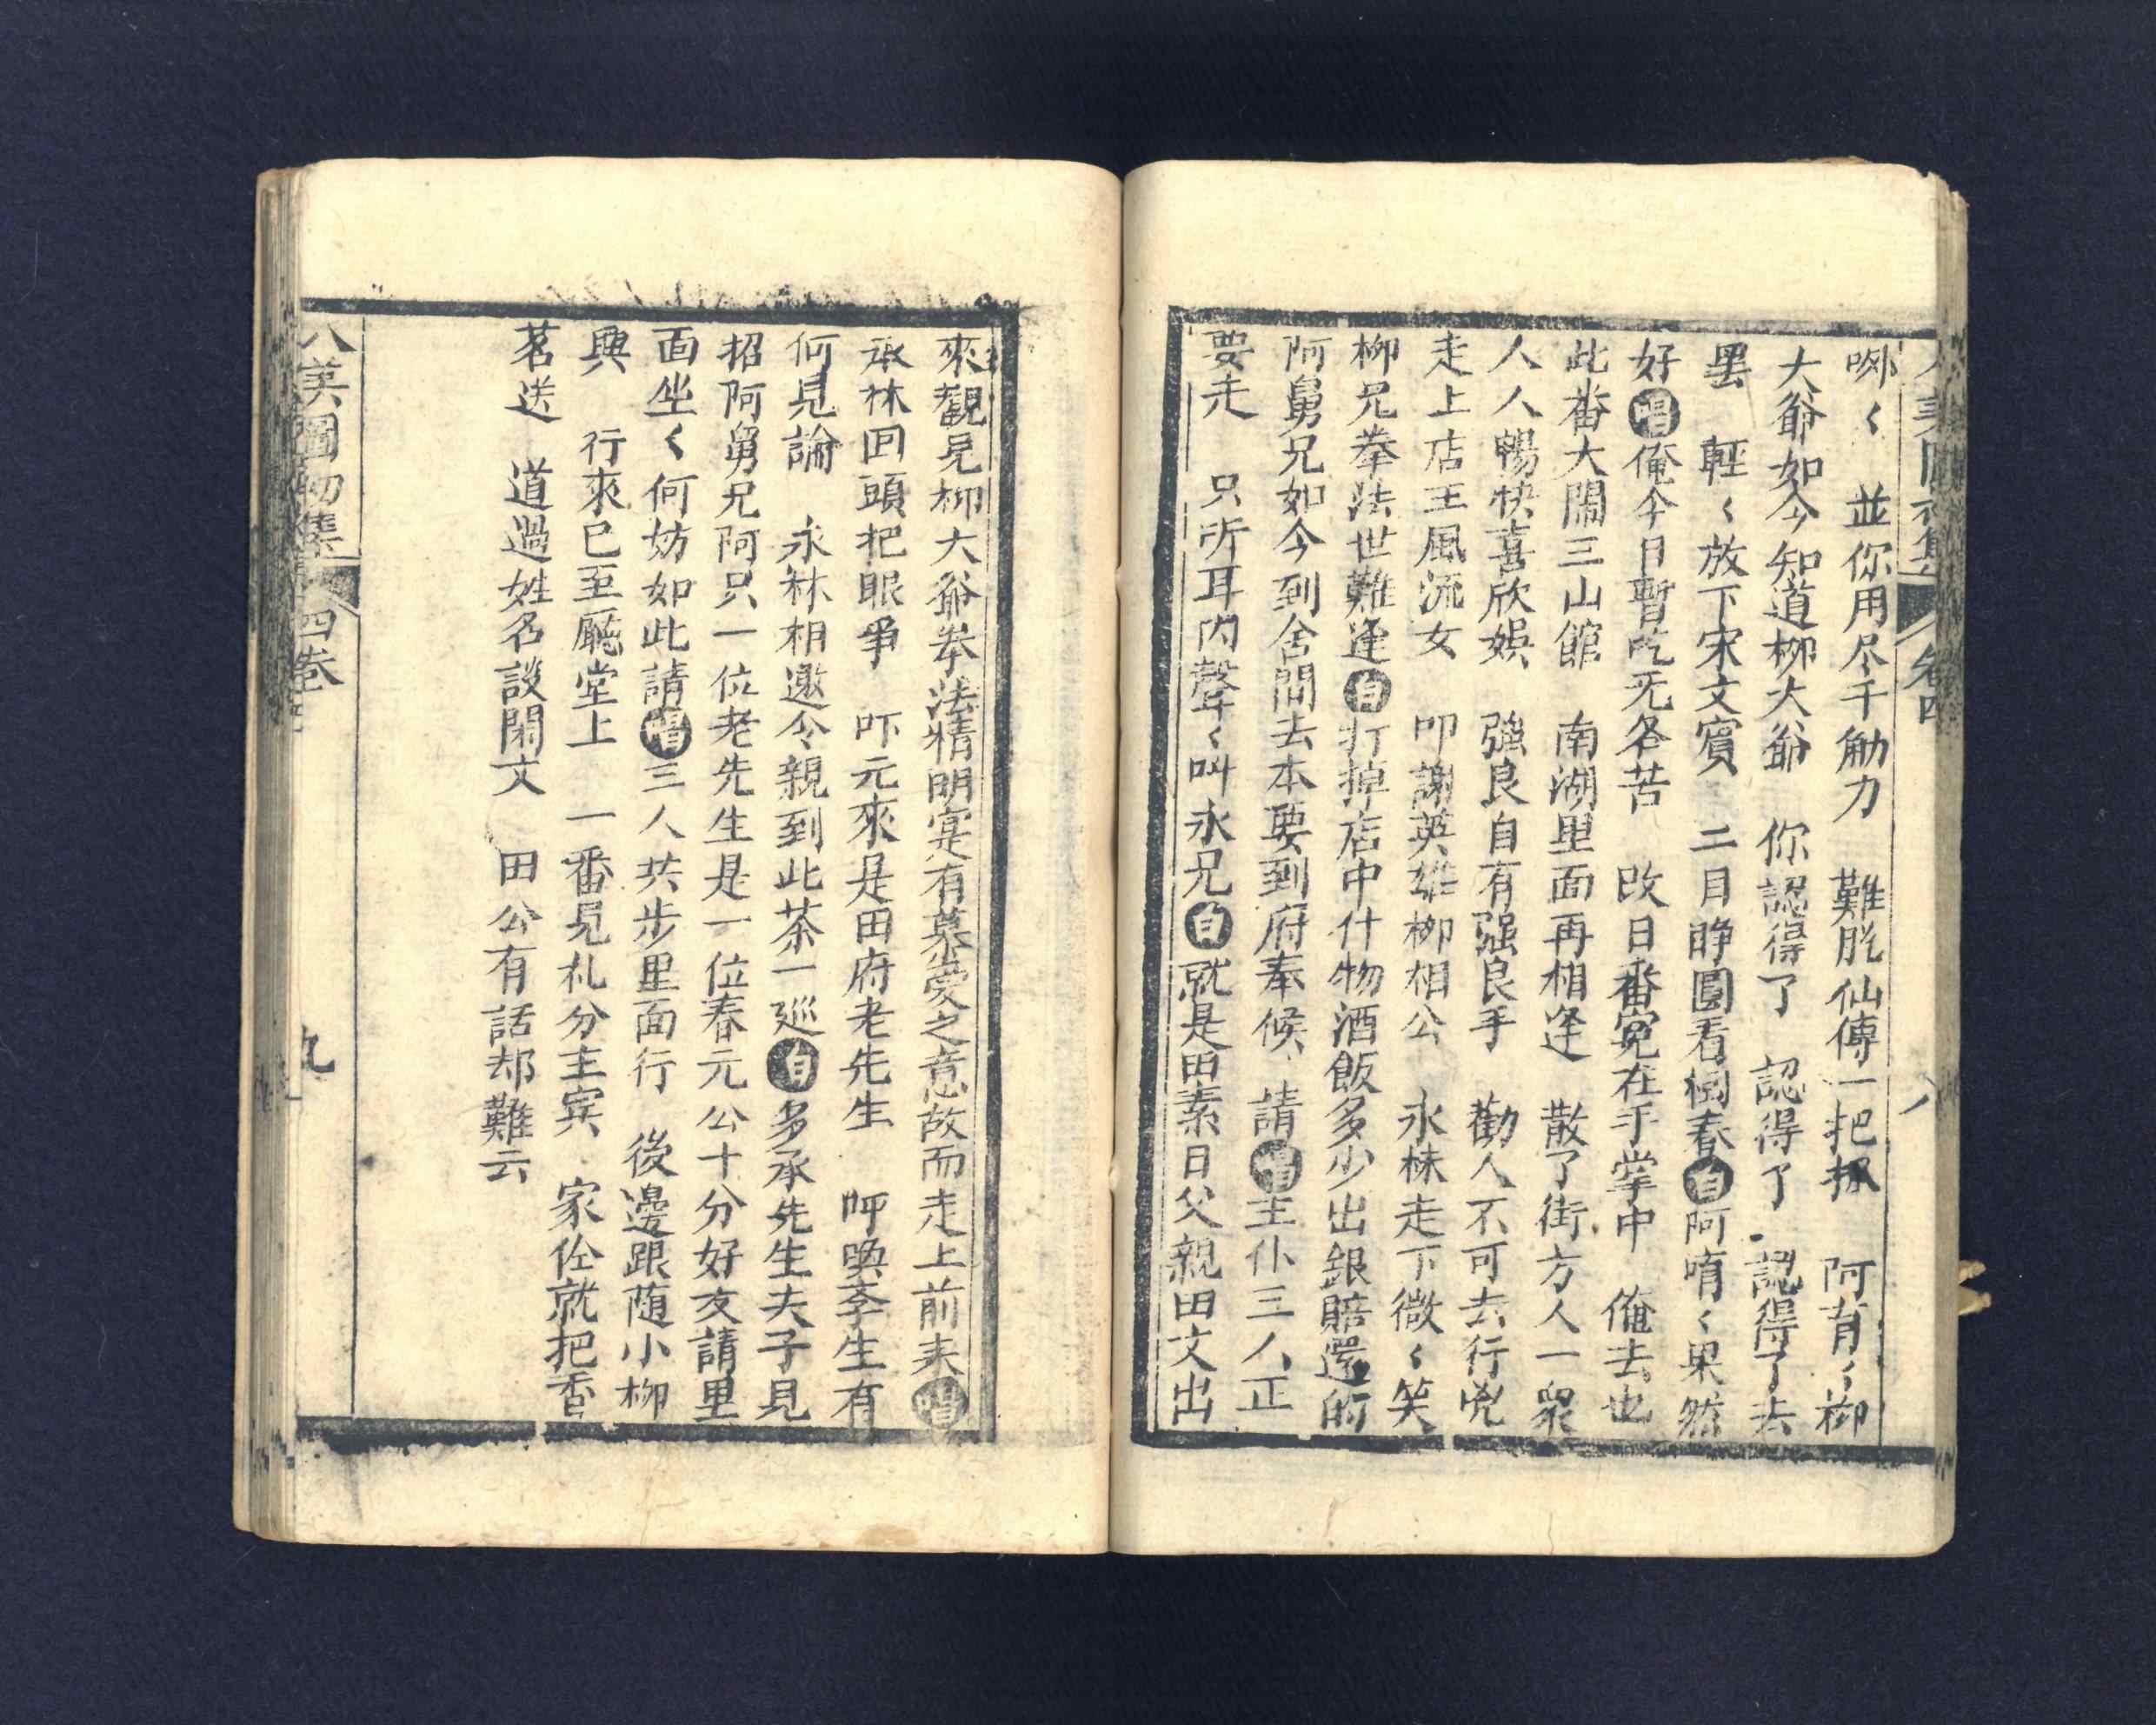 咧く 並你用尽千觔力 難脱仙傳一把抓 阿育く柳
大爺如今知道柳大爺 你認得了 認得了 認得了去
罢 輕く放下宋文賓 二目睁圓看樹春自阿唷く果然
好唱俺今日暫吃无各苦 改日番寃在手掌中 俺去也
此番大鬧三山館 南湖里面再相逢 散了街方人一衆
人人暢快喜欣娛 強良自有强良手 勸人不可去行兇
走上店主風流女 叩謝英雄柳相公 永林走下微く笑
柳兄拳法世難逢自打掉店中什物酒飯多少出銀賠還的
阿舅兄如今到舍間去本要到府奉候 請唱主仆三人正
要走 只听耳内聲く叫永兄自就是田素日父親田文出
八美圖初集 卷四 八
來觀見柳大爺拳法精明寔有慕愛之意故而走上前来唱
永林回頭把眼爭 吓元來是田府老先生 呼喚李生有
何見論 永林相邀今親到此茶一巡自多承先生夫子見
招阿舅兄阿只一位老先生是一位春元公十分好友請里
面坐く何妨如此請唱三人共步里面行 後邊跟随小柳
興 行來已至廳堂上 一番見礼分主宾 家仝就把香
茗送 道過姓名談閑文 田公有話却難云
八美圖初集 四卷 九